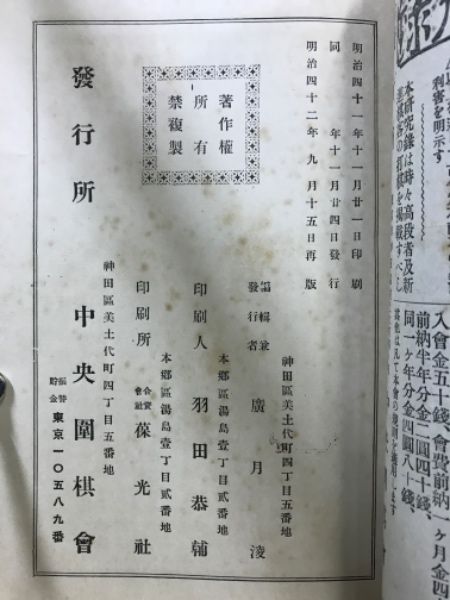 明治四十一年十一月廿一日印刷
同年十一月廿四日發行
明治四十二年九月十五日再版
著作權
所有
禁複製
神田區美土代町四丁目五番地
編輯兼
發行者
廣月凌
本郷區湯島壹丁目貳番地
印刷人 羽田恭輔
本郷區湯島壹丁目貳番地
印刷所
合資
會社
葆光社
神田區美土代町四丁目五番地
發行所 中央圍棋會
振替
貯金
東京一〇五八九番
利害を明示す
本研究錄は時々高段者及新
入會金五十錢、會費前納一ヶ月金四
前納半年分金二圓四十錢、
同一ヶ年分金四圓八十錢、